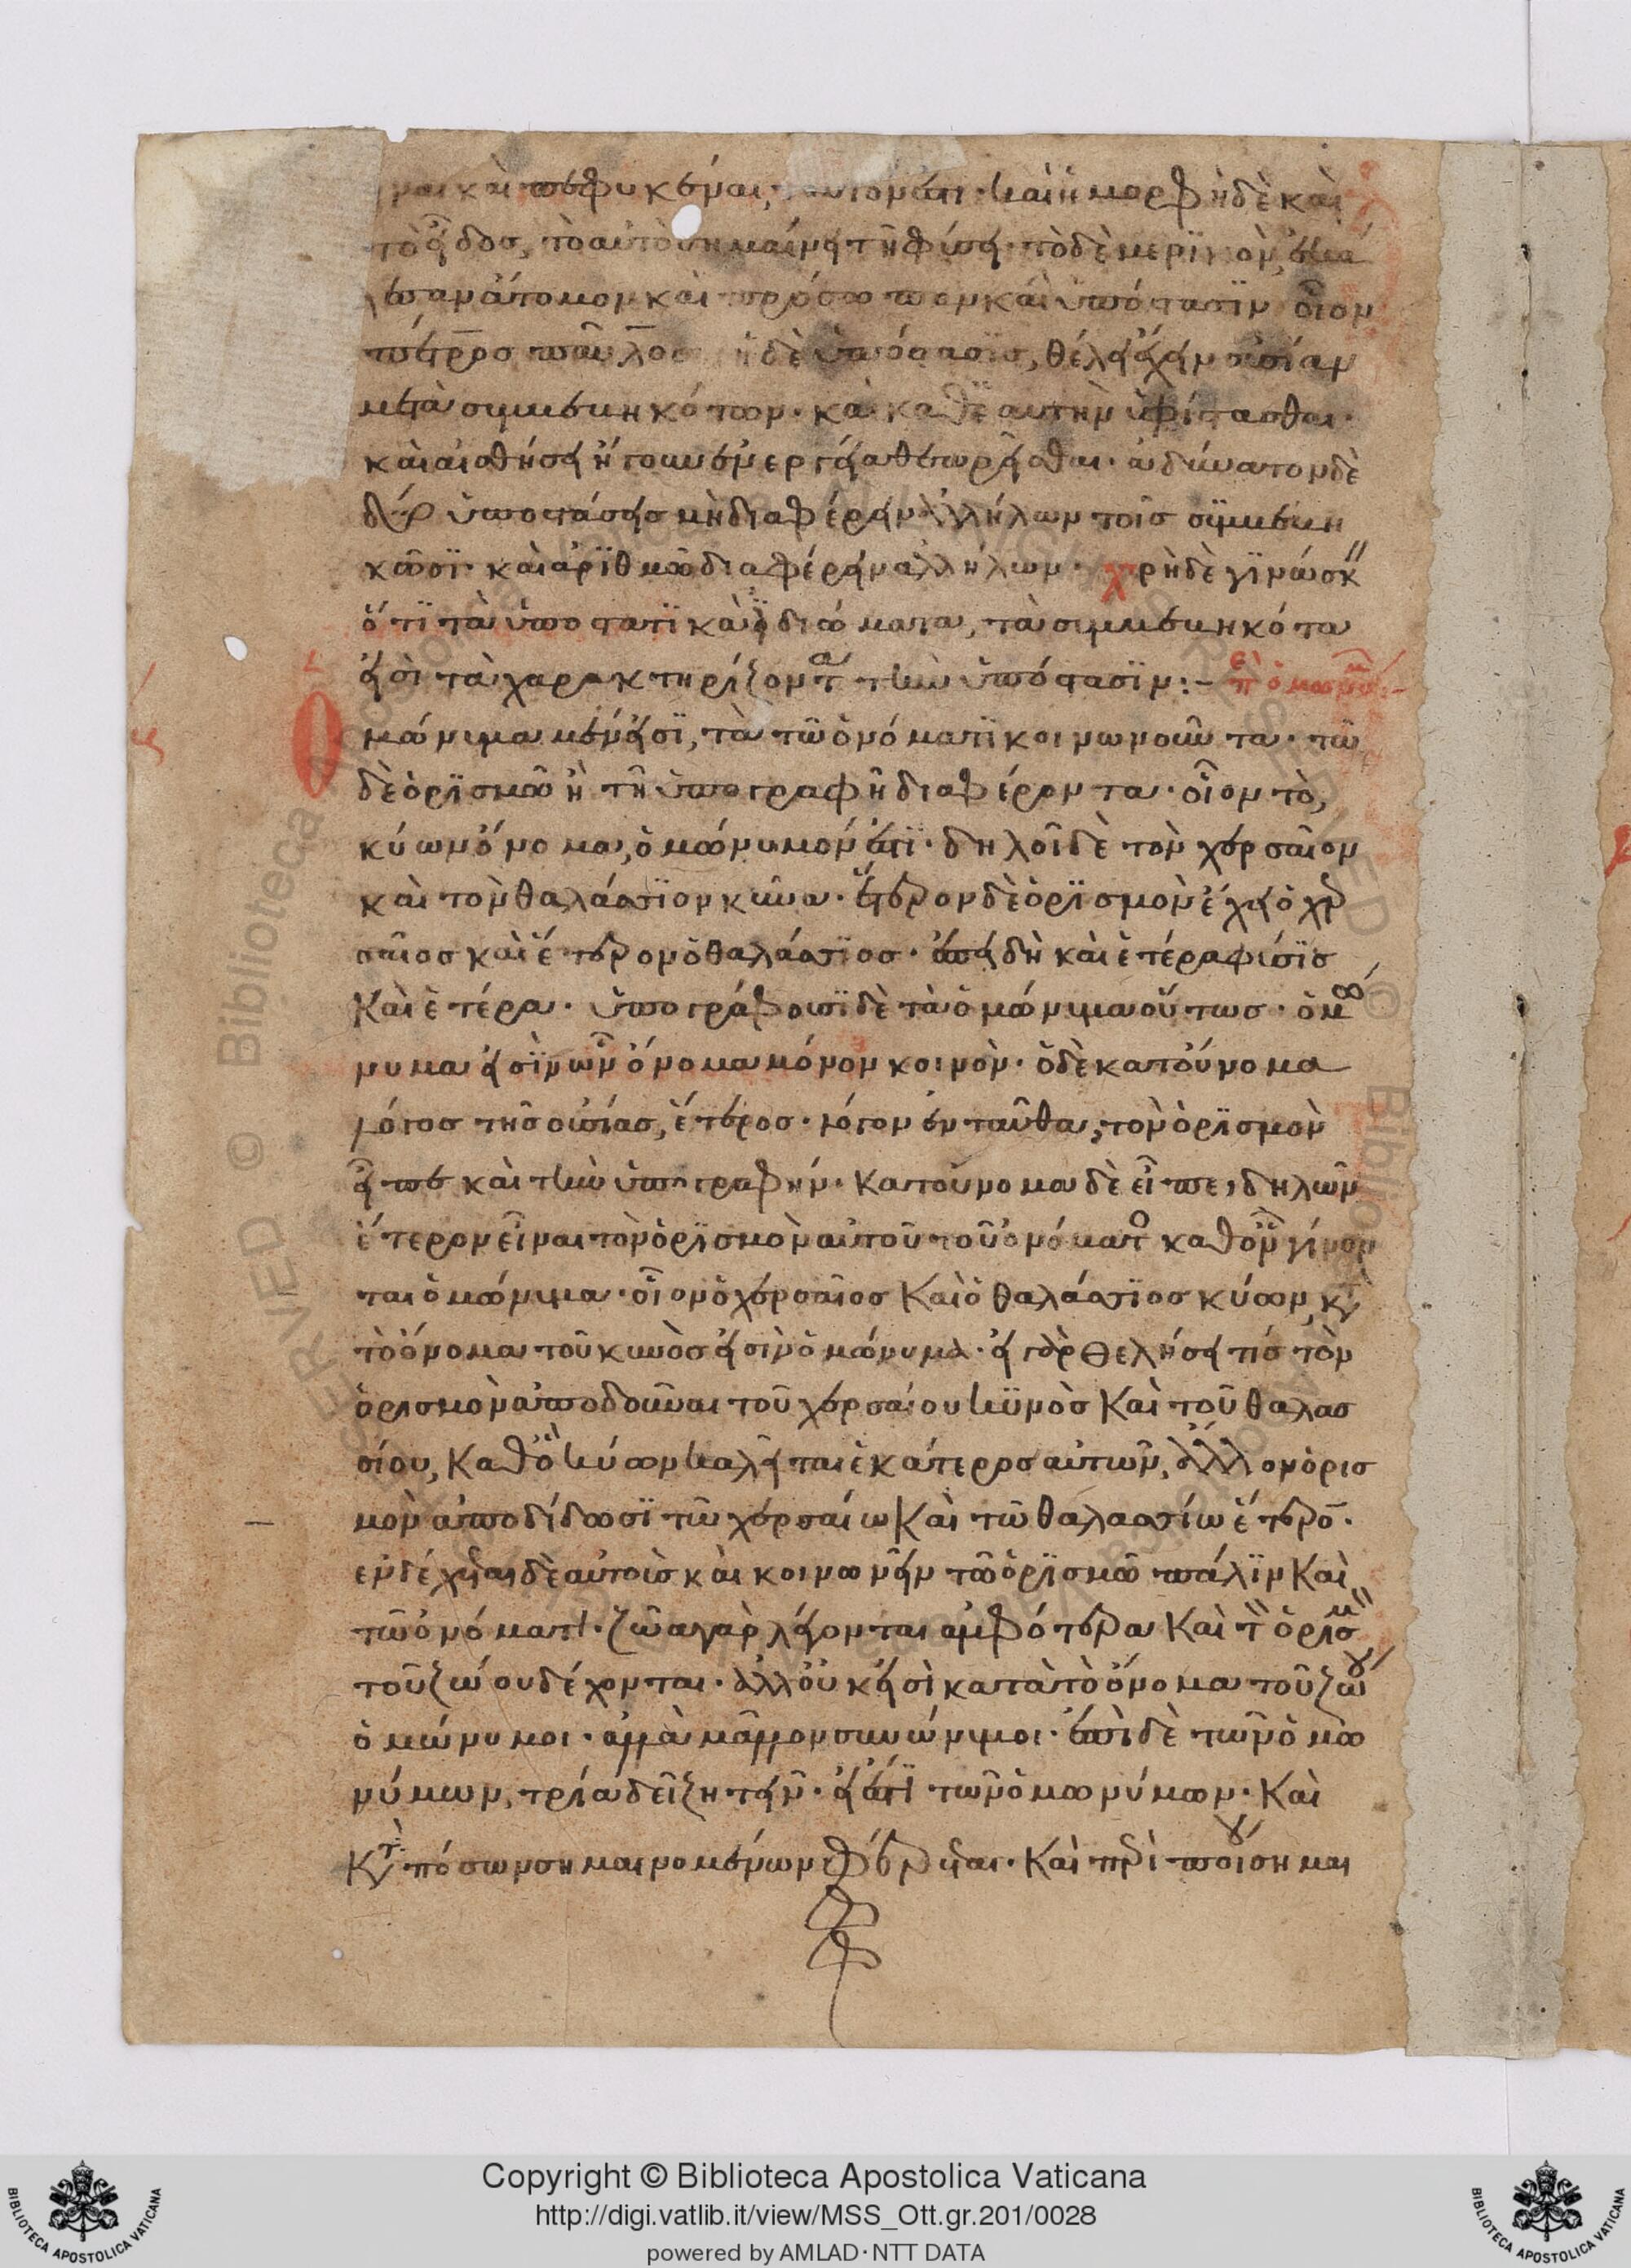 ναι καὶ πεφυκέναι, καὶ ἡ μορφὴ δὲ καὶ
τὸ εἶδος, τὸ αυτὸ σημαίνει τῆ φύσει· τὸ δὲ μερϊκὸν, ἐκα
λεσαν ἄτομον καὶ πρόσωπον καὶ ὑπόστασϊν οἷον
πέτρος παῦλος ἡ δὲ ὑπόστασϊς, θέλει ἔχειν οὐσίαν
μετὰ συμβεβηκότων· καὶ καθ' ἑαυτὴν ὑφίστασθαι·
καὶ αἰσθήσει ἤγουν ἐνεργεία θεωρεῖσθαι· ἀδύνατον δὲ
δύο ὑποστάσεις μὴ διαφέρειν ἀλλήλων τοῖς συμβεβη
κῶσϊ· καὶ ἀρϊθμῶ διαφέρειν αλλήλων· χρὴ δὲ γϊνώσκ
ὅτϊ τὰ ὑποστατϊκὰ ϊδιώματα, τὰ συμβεβηκότα
εἰσὶ τὰ χαρακτηρίζοντα τὴν ὑπόστασϊν:–
Ομώνυμα μέν εἰσϊ, τὰ τῶ ὀνόματϊ κοινωνοῦντα· τῶ
δὲ ὁρϊσμῶ ἢ τῆ ὑπογραφῆ διαφέροντα· οἷον τὸ,
κύων ὄνομα, ὁμώνυμόν ἐστϊ· δηλοῖ δὲ τὸν χερσαῖον
καὶ τὸν θαλάσσϊον κύνα· ἕτερον δὲ ὁρϊσμὸν ἔχει ὁ χερ
σαῖος καὶ ἕτερον ὁ θαλάσσϊος· ἐπειδὴ καὶ ἑτέρα φύσϊς
Καὶ ἑτέρα· ὑπογράφουσϊ δὲ τὰ ὁμώνυμα οὕτως· ὁμω
νυμα εἰσὶν ὧν ὄνομα μόνον κοινὸν· ὁ δὲ κατοὔνομα
λόγος τῆς οὐσίας, ἕτερος· λόγον ἐνταῦθα, τὸν ὁρϊσμὸν
εἶπε καὶ τὴν ὑπογραφήν· Κατοὔνομα δὲ εἶπε, δηλῶν
ἕτερον εἶναι τὸν ὁρϊσμὸν αὐτοῦ τοῦ ὀνόματος καθ' ὃν γίνον
ται ὁμώνυμα· οἷον ὁ χερσαῖος Καὶ ὁ θαλάσσϊος κύων κατὰ
τὸ ὄνομα τοῦ κυνὸς εἰσὶν ὁμώνυμα· εἰ γὰρ θελήσει τίς τὸν
ὁρισμὸν ἀποδοῦναι τοῦ χερσαίου κϋνὸς Καὶ τοῦ θαλασ
σίου, Καθ' ὃ κύων καλεῖται ἑκάτερος αὐτῶν, ἄλλον ὁρισ
μὸν ἀποδίδωσϊ τῶ χερσαίω Καὶ τῶ θαλασσίω ἕτερον·
ενδέχεται δὲ αὐτοὶς καὶ κοινωνεῖν τῶ ὁρϊσμῶ πάλϊν Καὶ
τῶ ὀνόματι· ζῶα γαρ λέγονται αμφότερα Καὶ τὸν ὁρισμὸν
τοῦ ζώου δέχονται· ἀλλ' οὔκ εἰσὶ κατὰ τὸ ὄνομα τοῦ ζώου
ὁμώνυμοι· αλλὰ μᾶλλον συνώνυμοι· ἐπὶ δὲ τῶν ὁμω
νύμων, τρία δεῖ ζητεῖν· εἰ ἔστϊ τῶν ὁμωνύμων· Καὶ
Κατὰ πόσων σημαινομένων φέρεται· Καὶ περὶ ποίου σημαι